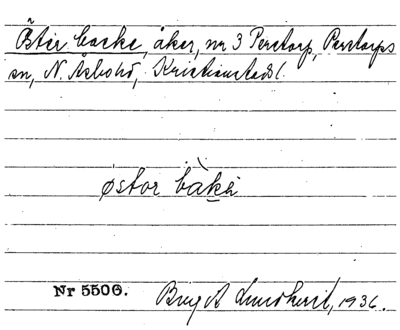 Öster backe, åker, nr 3 Perstorp, Perstorps
sn, N. Åsbohd, Kristianstads l.
østor bàkẹ
Nr 5506. Birg A Lundkvist, 1936.